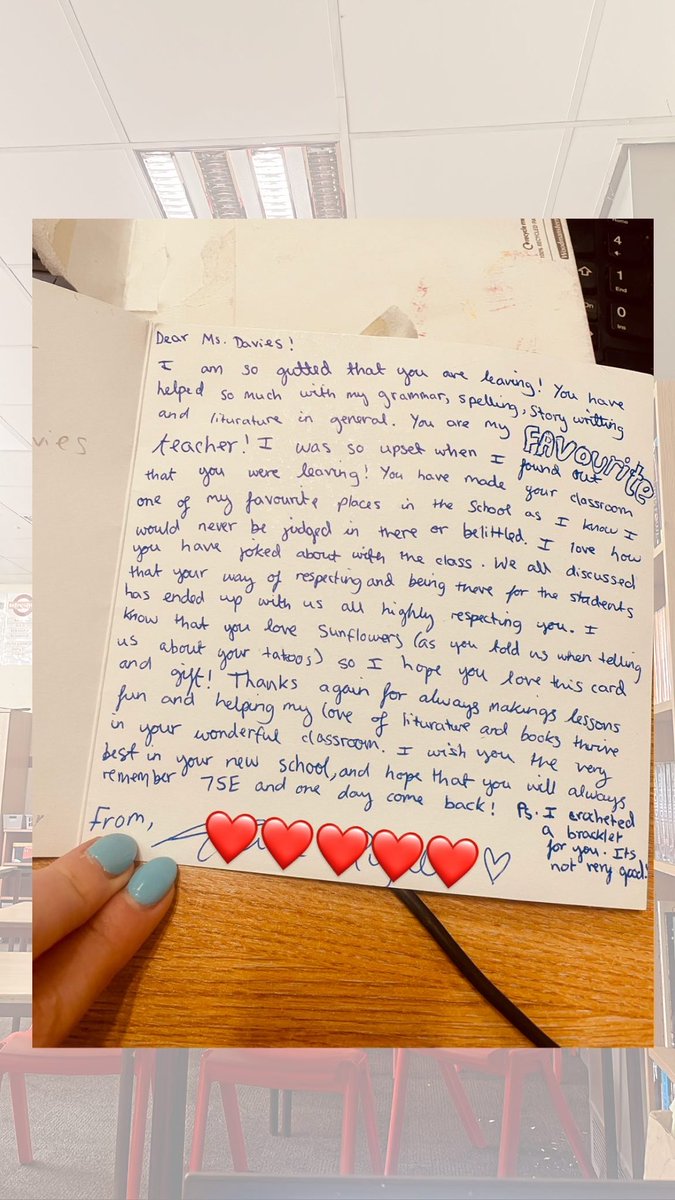 recycle me
100% RECYCLED PAPER
Home
4
1
End
0
Ins
vies
Dear Ms. Davies!
I am so gutted that you are leaving! You have
helped so much with my grammar, spelling, story writting
and liturature in general. You are my FAVOURITE
teacher! I was so upset when I found out
that you were leaving! You have made your classroom
one of my favourite places in the School as I know I
would never be judged in there or belittled. I love how
you have joked about with the class. We all discussed
that your way of respecting and being there for the students
has ended up with us all highly respecting you. I
know that you love Sunflowers (as you told us when telling
us about your tatoos) so I hope you love this card
and gift! Thanks again for always makings lessons
fun and helping my love of liturature and books thrive
in your wonderful classroom. I wish you the very
best in your new school, and hope that you will always
remember 7SE and one day come back!
From,
Ps. I crocheted
a bracklet
for you. Its
not very good!